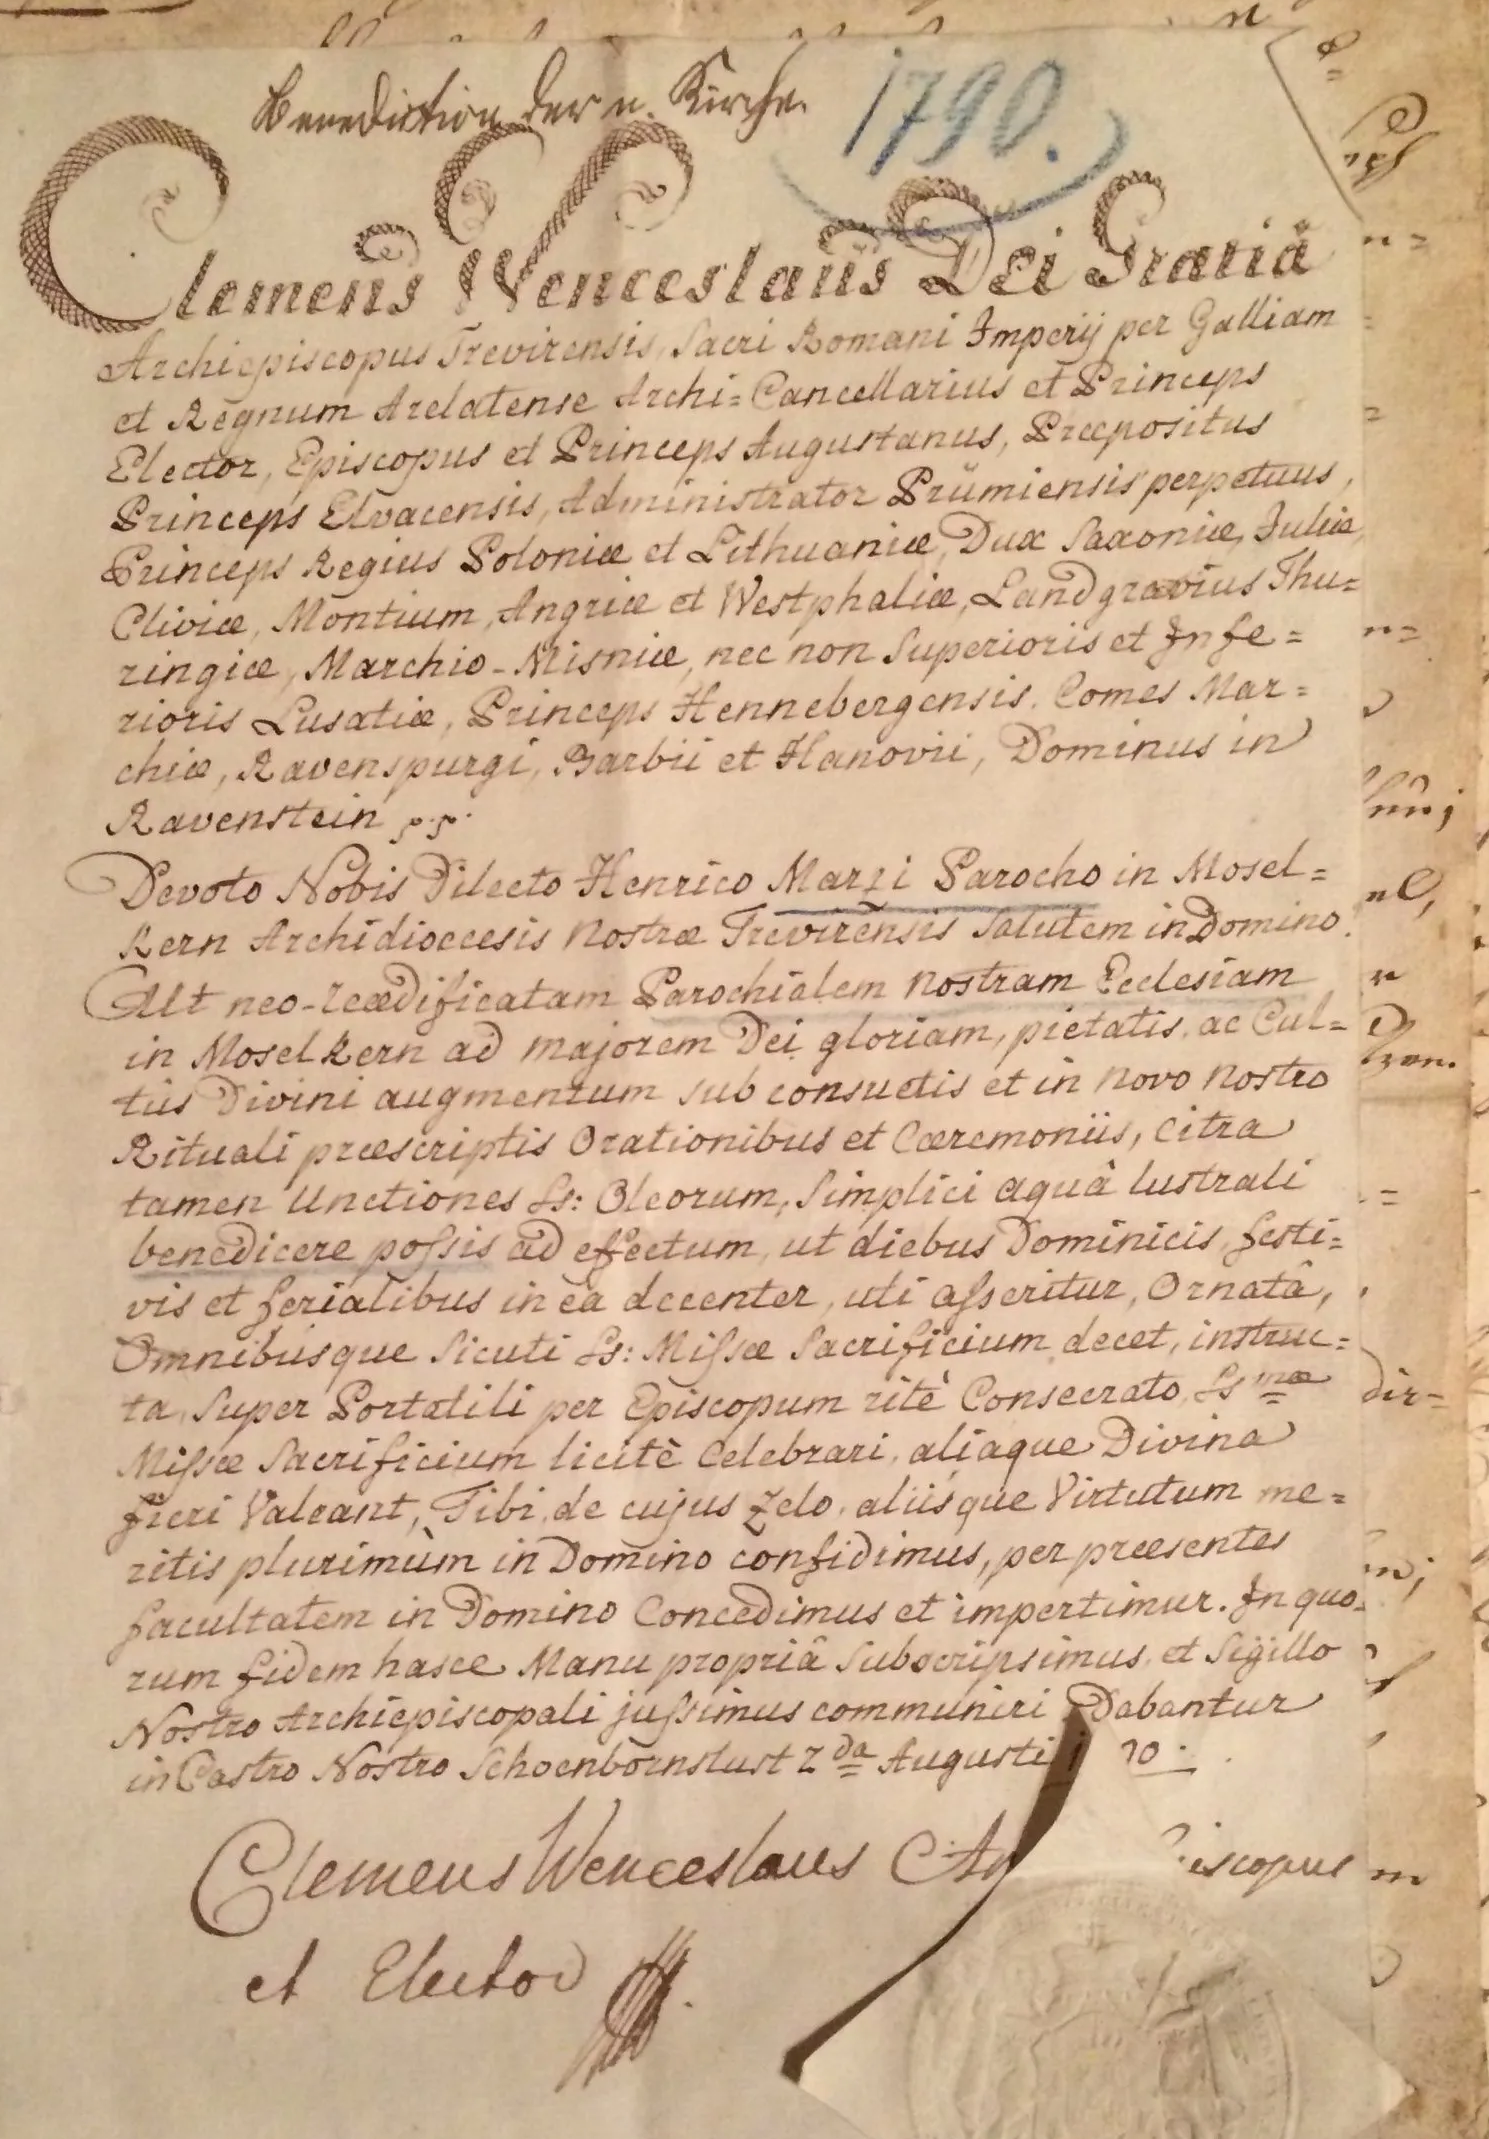 Benediction der n. Kirche.
1790.
Clemens Wenceslaus Dei Gratiâ
Archiepiscopus Trevirensis, Sacri Romani Imperij per Galliam
et Regnum Arelatense Archi=Cancellarius et Princeps
Elector, Episcopus et Princeps Augustanus, Præpositus
Princeps Elvacensis, Administrator Prümiensis perpetuus,
Princeps Regius Poloniæ et Lithuaniæ, Dux Saxoniæ, Juliæ
Cliviæ, Montium, Angriæ et Westphaliæ, Landgravius Thu=
ringiæ, Marchio-Misniæ, nec non Superioris et Infe=
rioris Lusatiæ, Princeps Hennebergensis. Comes Mar=
chiæ, Ravenspurgi, Barbii et Hanovii, Dominus in
Ravenstein p.p.
Devoto Nobis Dilecto Henrico Marzi Parocho in Mosel=
kern Archidioecesis Nostræ Trevirensis Salutem in Domino.
Ut neo-reædificatam Parochialem Nostram Ecclesiam
in Moselkern ad majorem Dei gloriam, pietatis, ac Cul=
tûs Divini augmentum sub consuetis et in novo nostro
Rituali præscriptis Orationibus et Cæremoniis, citra
tamen Unctiones Ss: Oleorum, Simplici aquâ lustrali
benedicere possis ad effectum, ut diebus Dominicis, festi=
vis et ferialibus in eâ decenter, uti asseritur, Ornatâ,
Omnibusque Sicuti Ss: Missæ Sacrificium decet, instruc=
ta, Super Portatili per Episcopum ritè Consecrato, Ssmæ
Missæ Sacrificium licitè Celebrari, aliaque Divina
fieri Valeant, Tibi, de cujus Zelo, aliisque Virtutum me=
ritis plurimùm in Domino confidimus, per præsentes
facultatem in Domino Concedimus et impertimur. In quo=
rum fidem hasce Manu propriâ Subscripsimus, et Sigillo
Nostro Archiepiscopali jussimus communiri Dabantur
in Castro Nostro Schoenbornslust 2da Augusti
Clemens Wenceslaus
et Elector